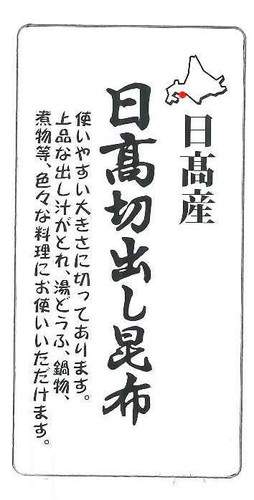 日髙産
日髙切出し昆布
使いやすい大きさに切ってあります。
上品な出し汁がとれ、湯どうふ、鍋物、
煮物等、色々な料理にお使いいただけます。